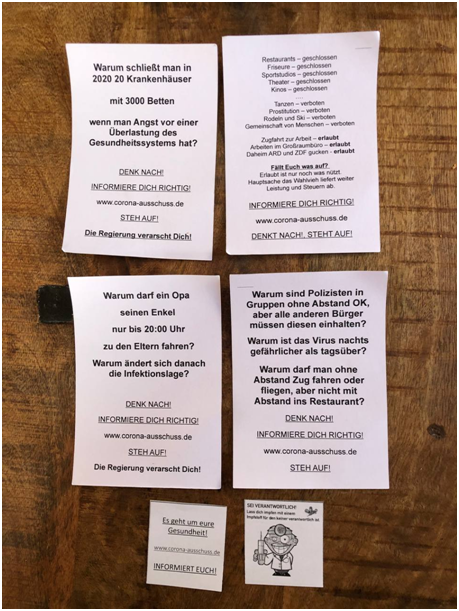 Warum schließt man in
2020 20 Krankenhäuser
mit 3000 Betten
wenn man Angst vor einer
Überlastung des
Gesundheitssystems hat?
DENK NACH!
INFORMIERE DICH RICHTIG!
www.corona-ausschuss.de
STEH AUF!
Die Regierung verarscht Dich!
Restaurants – geschlossen
Friseure – geschlossen
Sportstudios – geschlossen
Theater – geschlossen
Kinos – geschlossen
....
Tanzen – verboten
Prostitution – verboten
Rodeln und Ski – verboten
Gemeinschaft von Menschen – verboten
Zugfahrt zur Arbeit – erlaubt
Arbeiten im Großraumbüro – erlaubt
Daheim ARD und ZDF gucken - erlaubt
Fällt Euch was auf?
Erlaubt ist nur noch was nützt.
Hauptsache das Wahlvieh liefert weiter
Leistung und Steuern ab.
INFORMIERE DICH RICHTIG!
www.corona-ausschuss.de
DENKT NACH!, STEHT AUF!
Warum darf ein Opa
seinen Enkel
nur bis 20:00 Uhr
zu den Eltern fahren?
Warum ändert sich danach
die Infektionslage?
DENK NACH!
INFORMIERE DICH RICHTIG!
www.corona-ausschuss.de
STEH AUF!
Die Regierung verarscht Dich!
Warum sind Polizisten in
Gruppen ohne Abstand OK,
aber alle anderen Bürger
müssen diesen einhalten?
Warum ist das Virus nachts
gefährlicher als tagsüber?
Warum darf man ohne
Abstand Zug fahren oder
fliegen, aber nicht mit
Abstand ins Restaurant?
DENK NACH!
INFORMIERE DICH RICHTIG!
www.corona-ausschuss.de
STEH AUF!
Es geht um eure
Gesundheit!
www.corona-ausschuss.de
INFORMIERT EUCH!
SEI VERANTWORTLICH!
Lass dich impfen mit einem
Impfstoff für den keiner verantwortlich ist